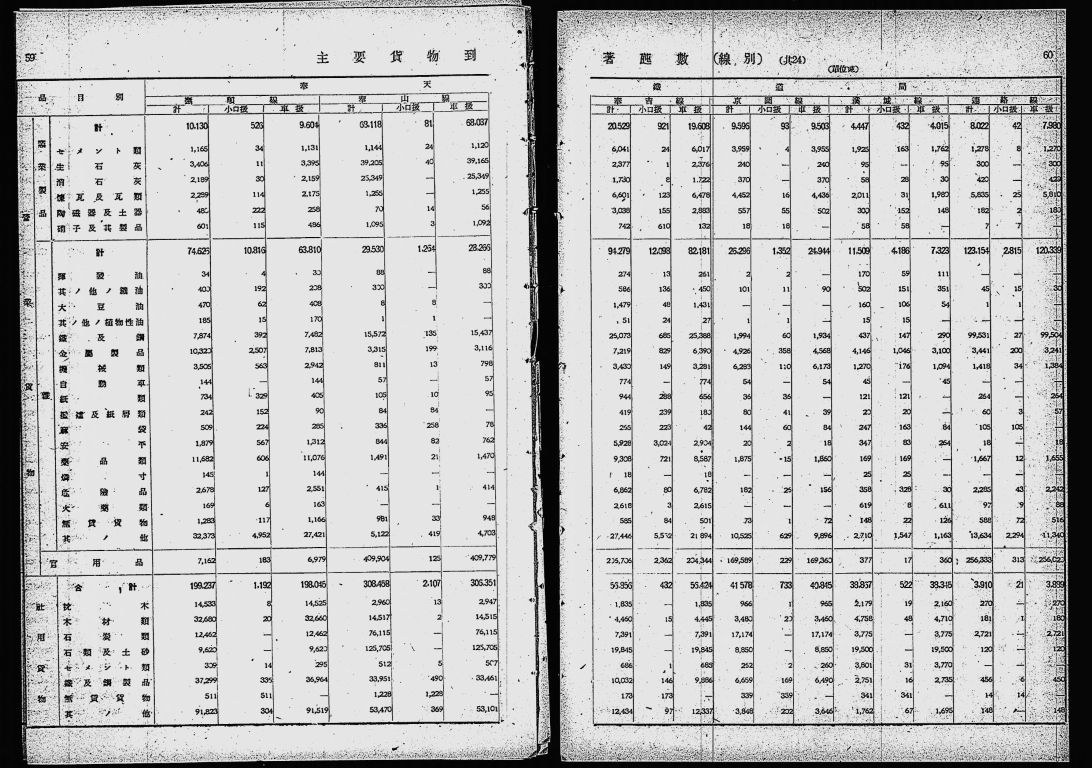 59
主要貨物到
品目別
奉天
撫順線 奉山線
計 小口扱 車扱 計 小口扱 車扱
計 10,130 526 9,604 68,118 81 68,037
セメント類 1,165 34 1,131 1,144 24 1,120
生石灰 3,406 11 3,395 39,205 40 39,165
消石灰 2,189 30 2,159 25,349 — 25,349
煉瓦及瓦類 2,289 114 2,175 1,255 — 1,255
陶磁器及土器 480 222 258 70 14 56
硝子及其製品 601 115 486 1,095 3 1,092
計 74,626 10,816 63,810 29,530 1,264 28,266
揮発油 34 4 30 88 — 88
其ノ他ノ鑛油 400 192 208 300 — 300
大豆油 470 62 408 8 8 —
其ノ他ノ植物性油 185 15 170 1 1 —
鐵及鋼 7,874 392 7,482 15,572 135 15,437
金屬製品 10,320 2,507 7,813 3,315 199 3,116
機械類 3,505 563 2,942 811 13 798
自動車 144 — 144 57 — 57
紙類 734 329 405 105 10 95
242 152 90 84 84 —
麻袋 509 224 285 336 258 78
安平 1,879 567 1,312 844 82 762
藥品類 11,682 606 11,076 1,491 21 1,470
燐寸 145 1 144 — — —
危險品 2,678 127 2,551 415 1 414
火藥類 169 6 163 — — —
無賃貨物 1,283 117 1,166 981 33 948
其ノ他 32,373 4,952 27,421 5,122 419 4,703
官用品 7,162 183 6,979 409,904 125 409,779
合計 199,237 1,192 198,045 308,458 2,107 306,351
社用貨物
枕木 14,533 8 14,525 2,960 13 2,947
木材類 32,680 20 32,660 14,517 2 14,515
石炭類 12,462 — 12,462 76,115 — 76,115
石類及土砂 9,620 — 9,620 125,705 — 125,705
セメント類 309 14 295 512 5 507
鐵及鋼製品 37,299 335 36,964 33,951 490 33,461
無賃貨物 511 511 — 1,228 1,228 —
其ノ他 91,823 304 91,519 53,470 369 53,101
60
著噸數(線別)(共24)
(單位瓲)
鐵道局
奉吉線 京圖線 濱城線 連絡線
計 小口扱 車扱 計 小口扱 車扱 計 小口扱 車扱 計 小口扱 車扱
20,529 921 19,608 9,596 93 9,503 4,447 432 4,015 8,022 42 7,980
6,041 24 6,017 3,959 4 3,955 1,925 163 1,762 1,278 8 1,270
2,377 1 2,376 240 — 240 95 — 95 300 — 300
1,730 8 1,722 370 — 370 58 28 30 420 — 420
6,601 123 6,478 4,452 16 4,436 2,011 31 1,980 5,835 25 5,810
3,038 155 2,883 557 55 502 300 152 148 182 2 180
742 610 132 18 18 — 58 58 — 7 7 —
94,279 12,098 82,181 26,296 1,352 24,944 11,509 4,186 7,323 123,154 2,815 120,339
274 13 261 2 2 — 170 59 111 — — —
586 136 450 101 11 90 502 151 351 45 15 30
1,479 48 1,431 — — — 160 106 54 1 1 —
51 24 27 1 1 — 15 15 — — — —
26,073 685 25,388 1,994 60 1,934 437 147 290 99,531 27 99,504
7,219 829 6,390 4,926 358 4,568 4,146 1,046 3,100 3,441 200 3,241
3,430 149 3,281 6,283 110 6,173 1,270 176 1,094 1,418 34 1,384
774 — 774 54 — 54 45 — 45 — — —
944 288 656 36 36 — 121 121 — 264 — 264
419 239 180 80 41 39 20 20 — 60 3 57
265 223 42 144 60 84 247 163 84 105 105 —
5,928 3,024 2,904 20 2 18 347 83 264 18 — 18
9,308 721 8,587 1,875 15 1,860 169 169 — 1,667 12 1,655
18 — 18 — — — 25 25 — — — —
6,862 80 6,782 182 26 156 358 328 30 2,285 43 2,242
2,618 3 2,615 — — — 619 8 611 97 9 88
585 84 501 73 1 72 148 22 126 588 72 516
27,446 5,552 21,894 10,525 629 9,896 2,710 1,547 1,163 13,634 2,294 11,340
206,706 2,362 204,344 169,589 229 169,360 377 17 360 256,333 313 256,020
56,856 432 56,424 41,578 733 40,845 38,867 522 38,345 3,910 21 3,889
1,835 — 1,835 966 1 965 2,179 19 2,160 270 — 270
4,460 15 4,445 3,480 20 3,460 4,758 48 4,710 181 1 180
7,391 — 7,391 17,174 — 17,174 3,775 — 3,775 2,721 — 2,721
19,845 — 19,845 8,850 — 8,850 19,500 — 19,500 120 — 120
686 1 685 262 2 260 3,801 31 3,770 — — —
10,032 146 9,886 6,659 169 6,490 2,751 16 2,735 456 6 450
173 173 — 339 339 — 341 341 — 14 14 —
12,434 97 12,337 3,848 202 3,646 1,762 67 1,695 148 — 148